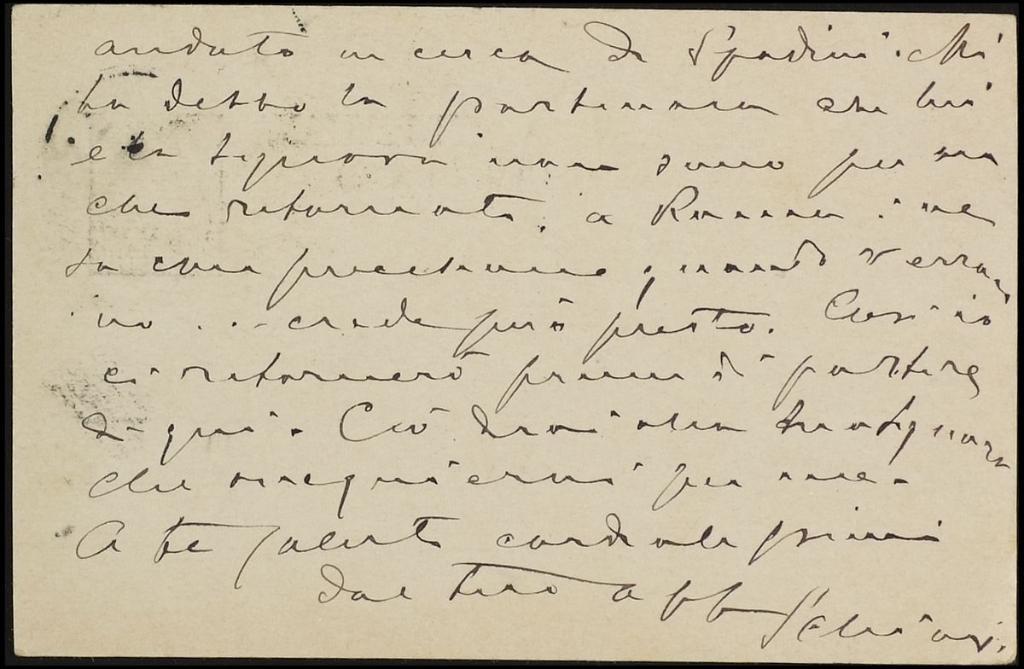 andato in cerca di Spadini. Mi
ha detto la portinaia che lui
e la signora non sono per an
che ritornati a Roma: ne
sa con precisione quando verran
no ... crede però presto. Così io
ci ritornerò prima di partire
di qui. Ciò dirai alla tua signora
che ossequierai per me.
A te saluti cordiali
dal tuo aff